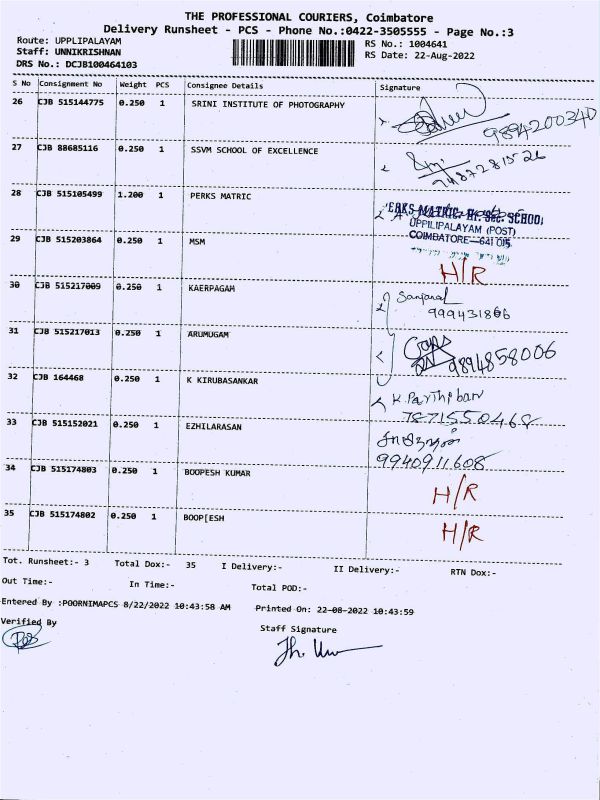 THE PROFESSIONAL COURIERS, Coimbatore
Delivery Runsheet - PCS - Phone No.:0422-3505555 - Page No.:3
Route: UPPLIPALAYAM
RS No.: 1004641
Staff: UNNIKRISHNAN
RS Date: 22-Aug-2022
DRS No.: DCJB100464103
S No Consignment No Weight PCS Consignee Details Signature
26 CJB 515144775 0.250 1 SRINI INSTITUTE OF PHOTOGRAPHY
9894200340
27 CJB 88685116 0.250 1 SSVM SCHOOL OF EXCELLENCE
28 CJB 515105499 1.200 1 PERKS MATRIC
PERKS MATRIC. Hr. Sec. SCHOOL
UPPILIPALAYAM (POST)
COIMBATORE-641 015
29 CJB 515203864 0.250 1 MSM
H/R
30 CJB 515217009 0.250 1 KAERPAGAM
999431866
31 CJB 515217013 0.250 1 ARUMUGAM
9894858006
32 CJB 164468 0.250 1 K KIRUBASANKAR
K. Parthiban
7871550468
33 CJB 515152021 0.250 1 EZHILARASAN
9940911608
34 CJB 515174803 0.250 1 BOOPESH KUMAR
H/R
35 CJB 515174802 0.250 1 BOOP[ESH
H/R
Tot. Runsheet:- 3 Total Dox:- 35 I Delivery:- II Delivery:- RTN Dox:-
Out Time:- In Time:- Total POD:-
Entered By :POORNIMAPCS 8/22/2022 10:43:58 AM Printed On: 22-08-2022 10:43:59
Verified By
Staff Signature